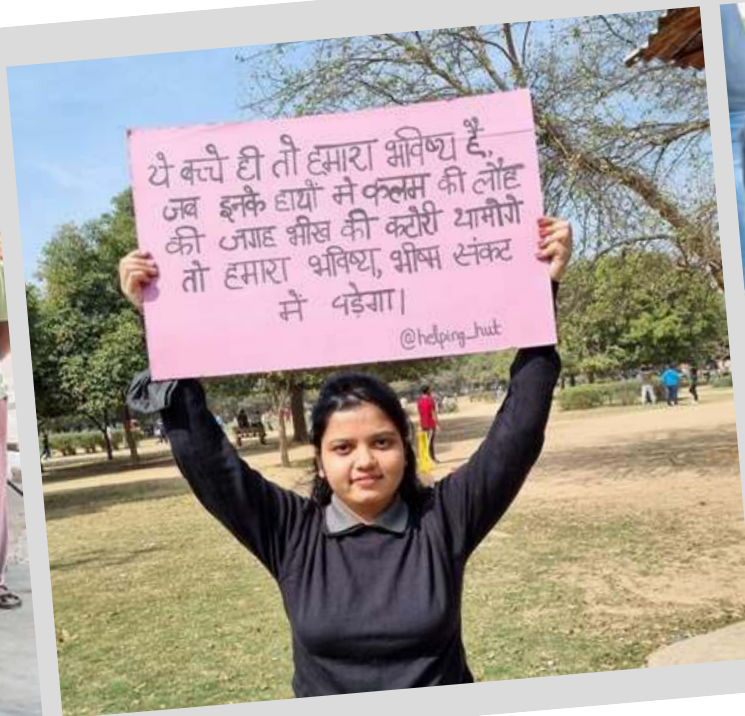 ये बच्चे ही तो हमारा भविष्य है,
जब इनके हाथों मे कलम की लौह
की जगह भीख की कटोरी थामोगे
तो हमारा भविष्य, भीष्म संकट
मे पड़ेगा।
@helping_hut